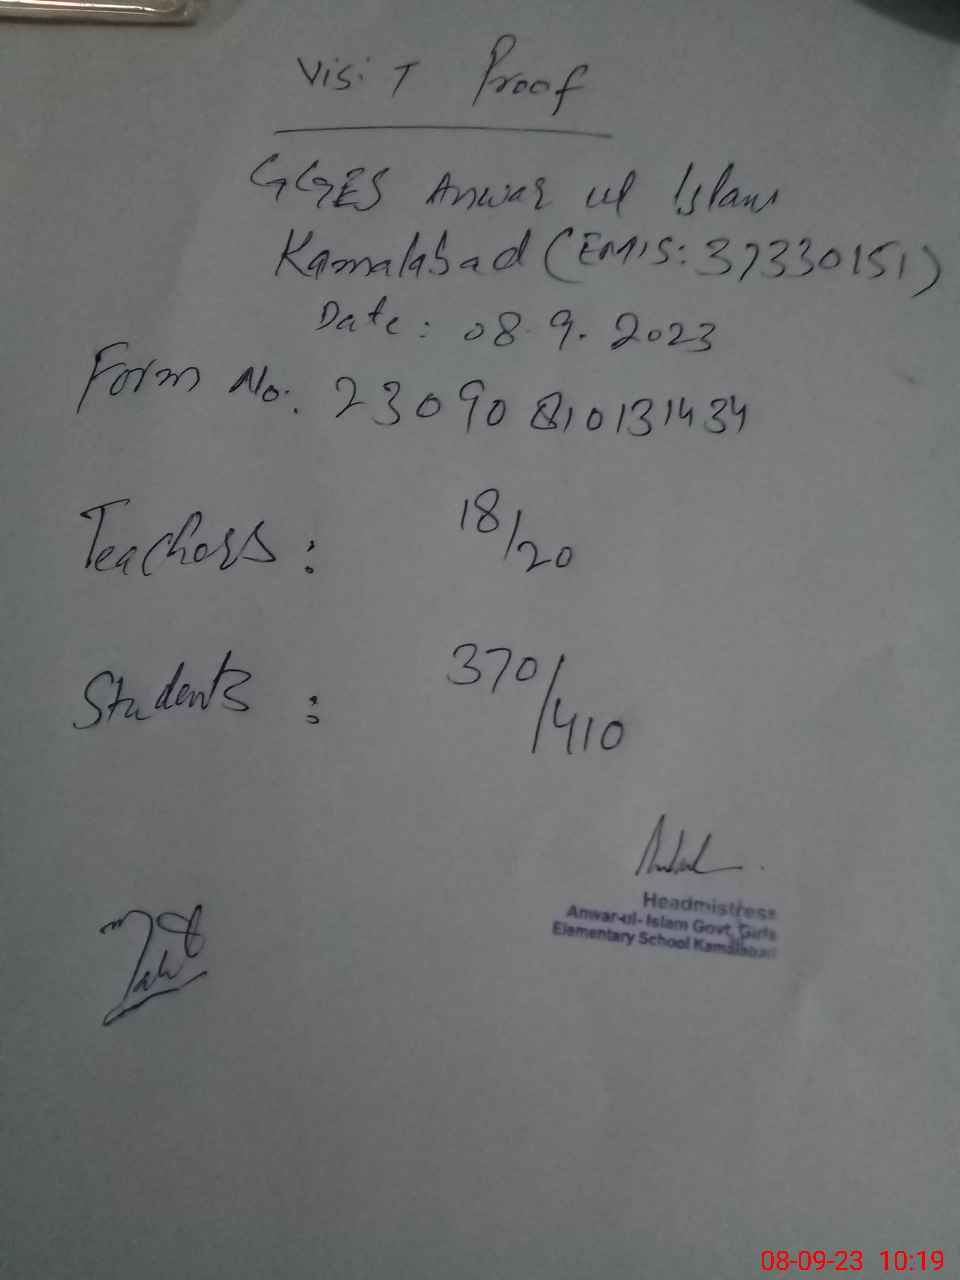 Visit Proof
GGES Anwar ul Islam
Kamalabad (EMIS: 37330151)
Date: 08.9.2023
Form No: 23090810131434
Teachers: 18/20
Students: 370/410
Headmistress
Anwar-ul-Islam Govt. Girls
Elementary School Kamalabad
08-09-23 10:19